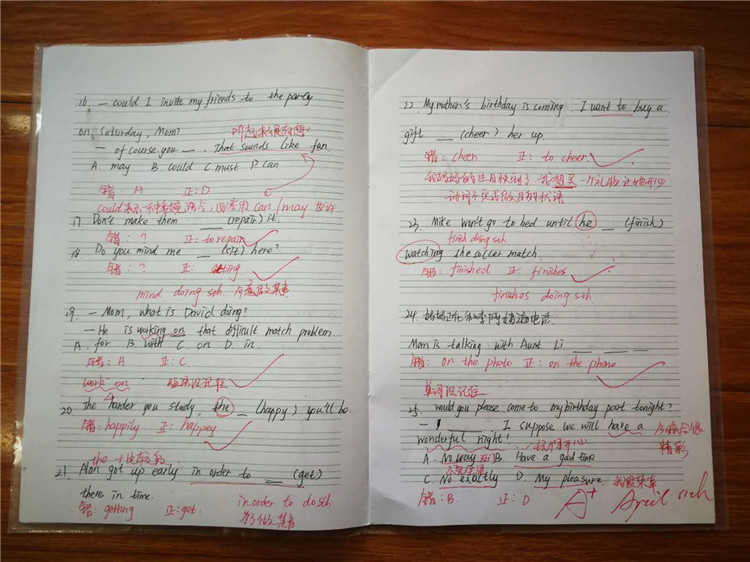 16. — could I invite my friends to the party
on Saturday, Mom?
听起来很有趣。
— of course you __. That sounds like fun.
A. may B. could C. must D. can
错: A 正: D
17. Don't make them __ (repair) it.
错: ? 正: to repair
18. Do you mind me __ (sit) here?
错: ? 正: sitting
mind doing sth.
19. — Mom, what is David doing?
— He is working on that difficult match problem
A. for B. with C. on D. in
错: A 正: C
work on 短语没记住
20. the harder you study, the __ (happy) you'll be.
错: happily 正: happey
the + 比较级
21. Alan got up early in order to __ (get)
there in time.
错: getting 正: got.
in order to do sth
为了做某事
22. My mother's birthday is coming. I want to buy a
gift __ (cheer) her up.
错: cheer 正: to cheer
23. Mike won't go to bed until he __ (finish)
finish doing sth
watching the soccer match.
错: finished 正: finishes
finishes doing sth
24. 妈妈正在和李阿姨通电话
Mom is talking with Aunt Li __ __ __
错: on the photo 正: on the phone
单词没记住
25. would you please come to my birthday part tonight?
— __. I suppose we will have a
wonderful night!
今晚会很
精彩
玩得开心
A. No way B. Have a good time
C. No exactly D. My pleasure.
错: B. 正: D
A+ April 11th